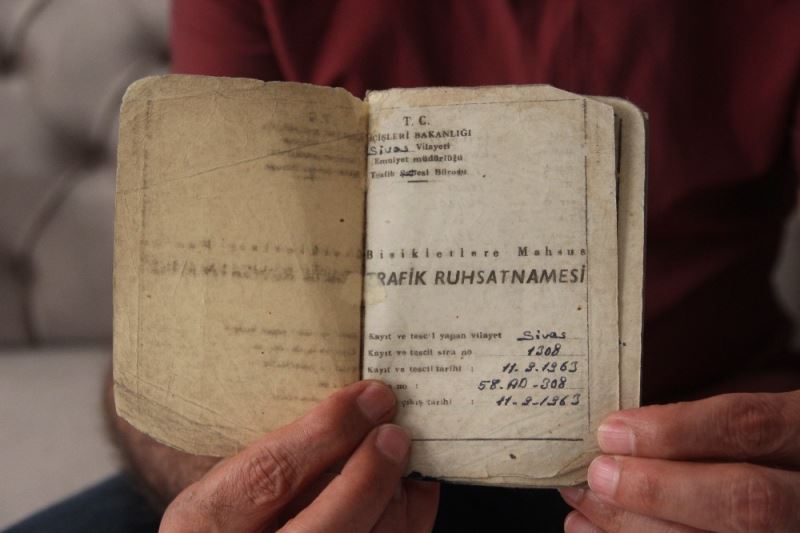 T. C.
İÇİŞLERİ BAKANLIĞI
Sivas Vilayeti
Emniyet müdürlüğü
Trafik Bürosu
Bisikletlere Mahsus
TRAFİK RUHSATNAMESİ
Kayıt ve tesc'l yapan vilayet Sivas
Kayıt ve tescil sıra no 1308
Kayıt ve tescil tarihi : 11.9.1963
no : 58.AD-308
çıkış tarihi : 11-9-1963